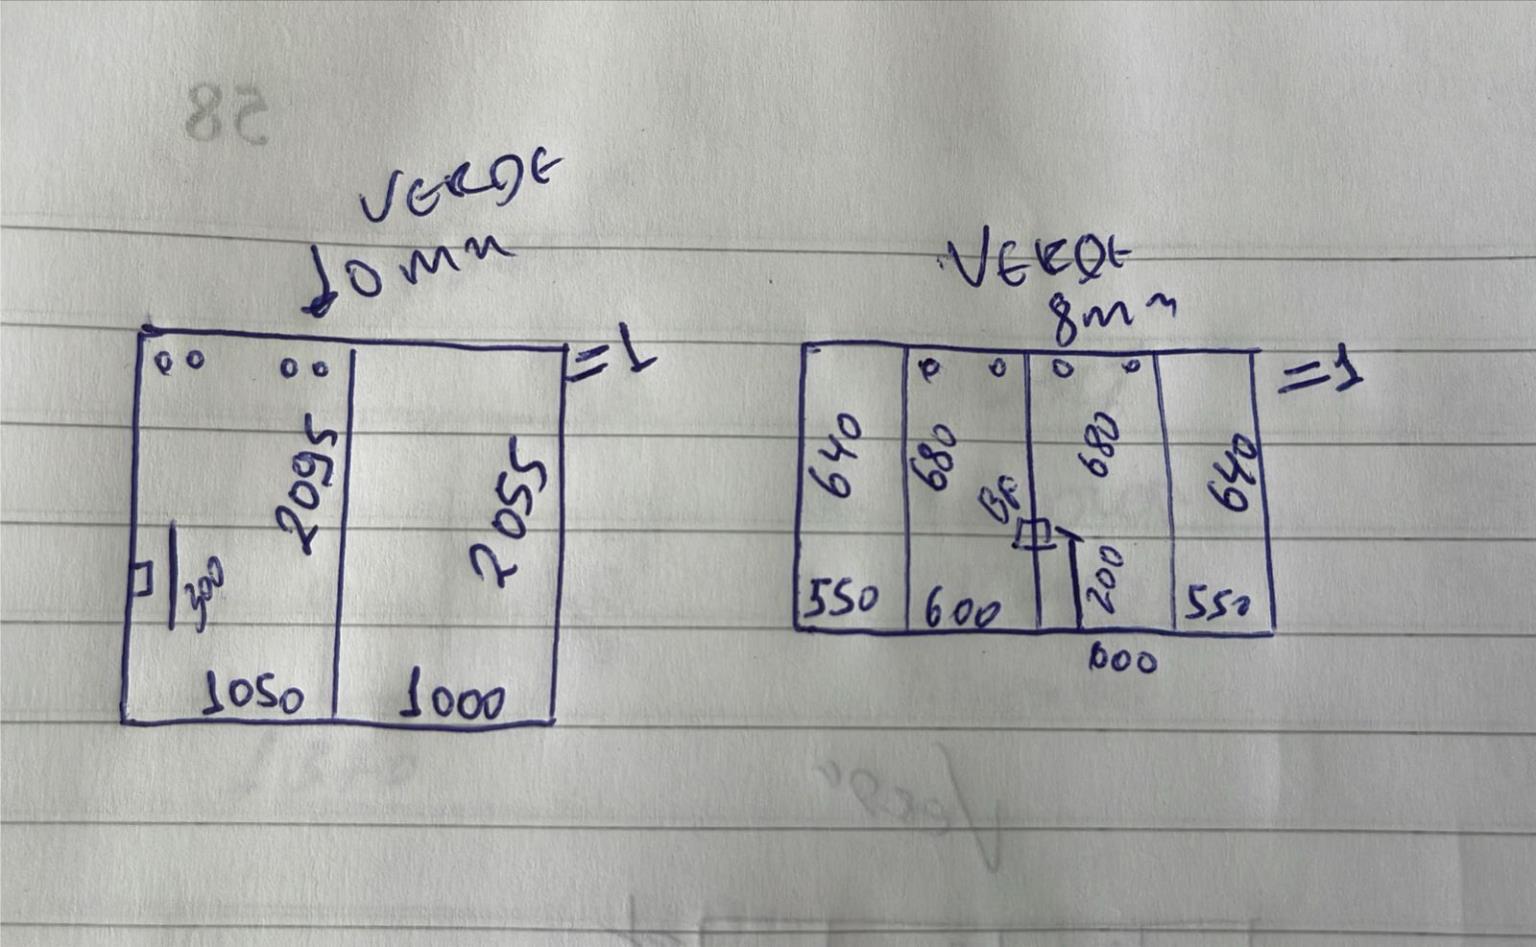 VERDE
10mm
=1
2095
2055
300
1050
1000
VERDE
8mm
=1
640
680
680
640
BF
200
550
600
550
600